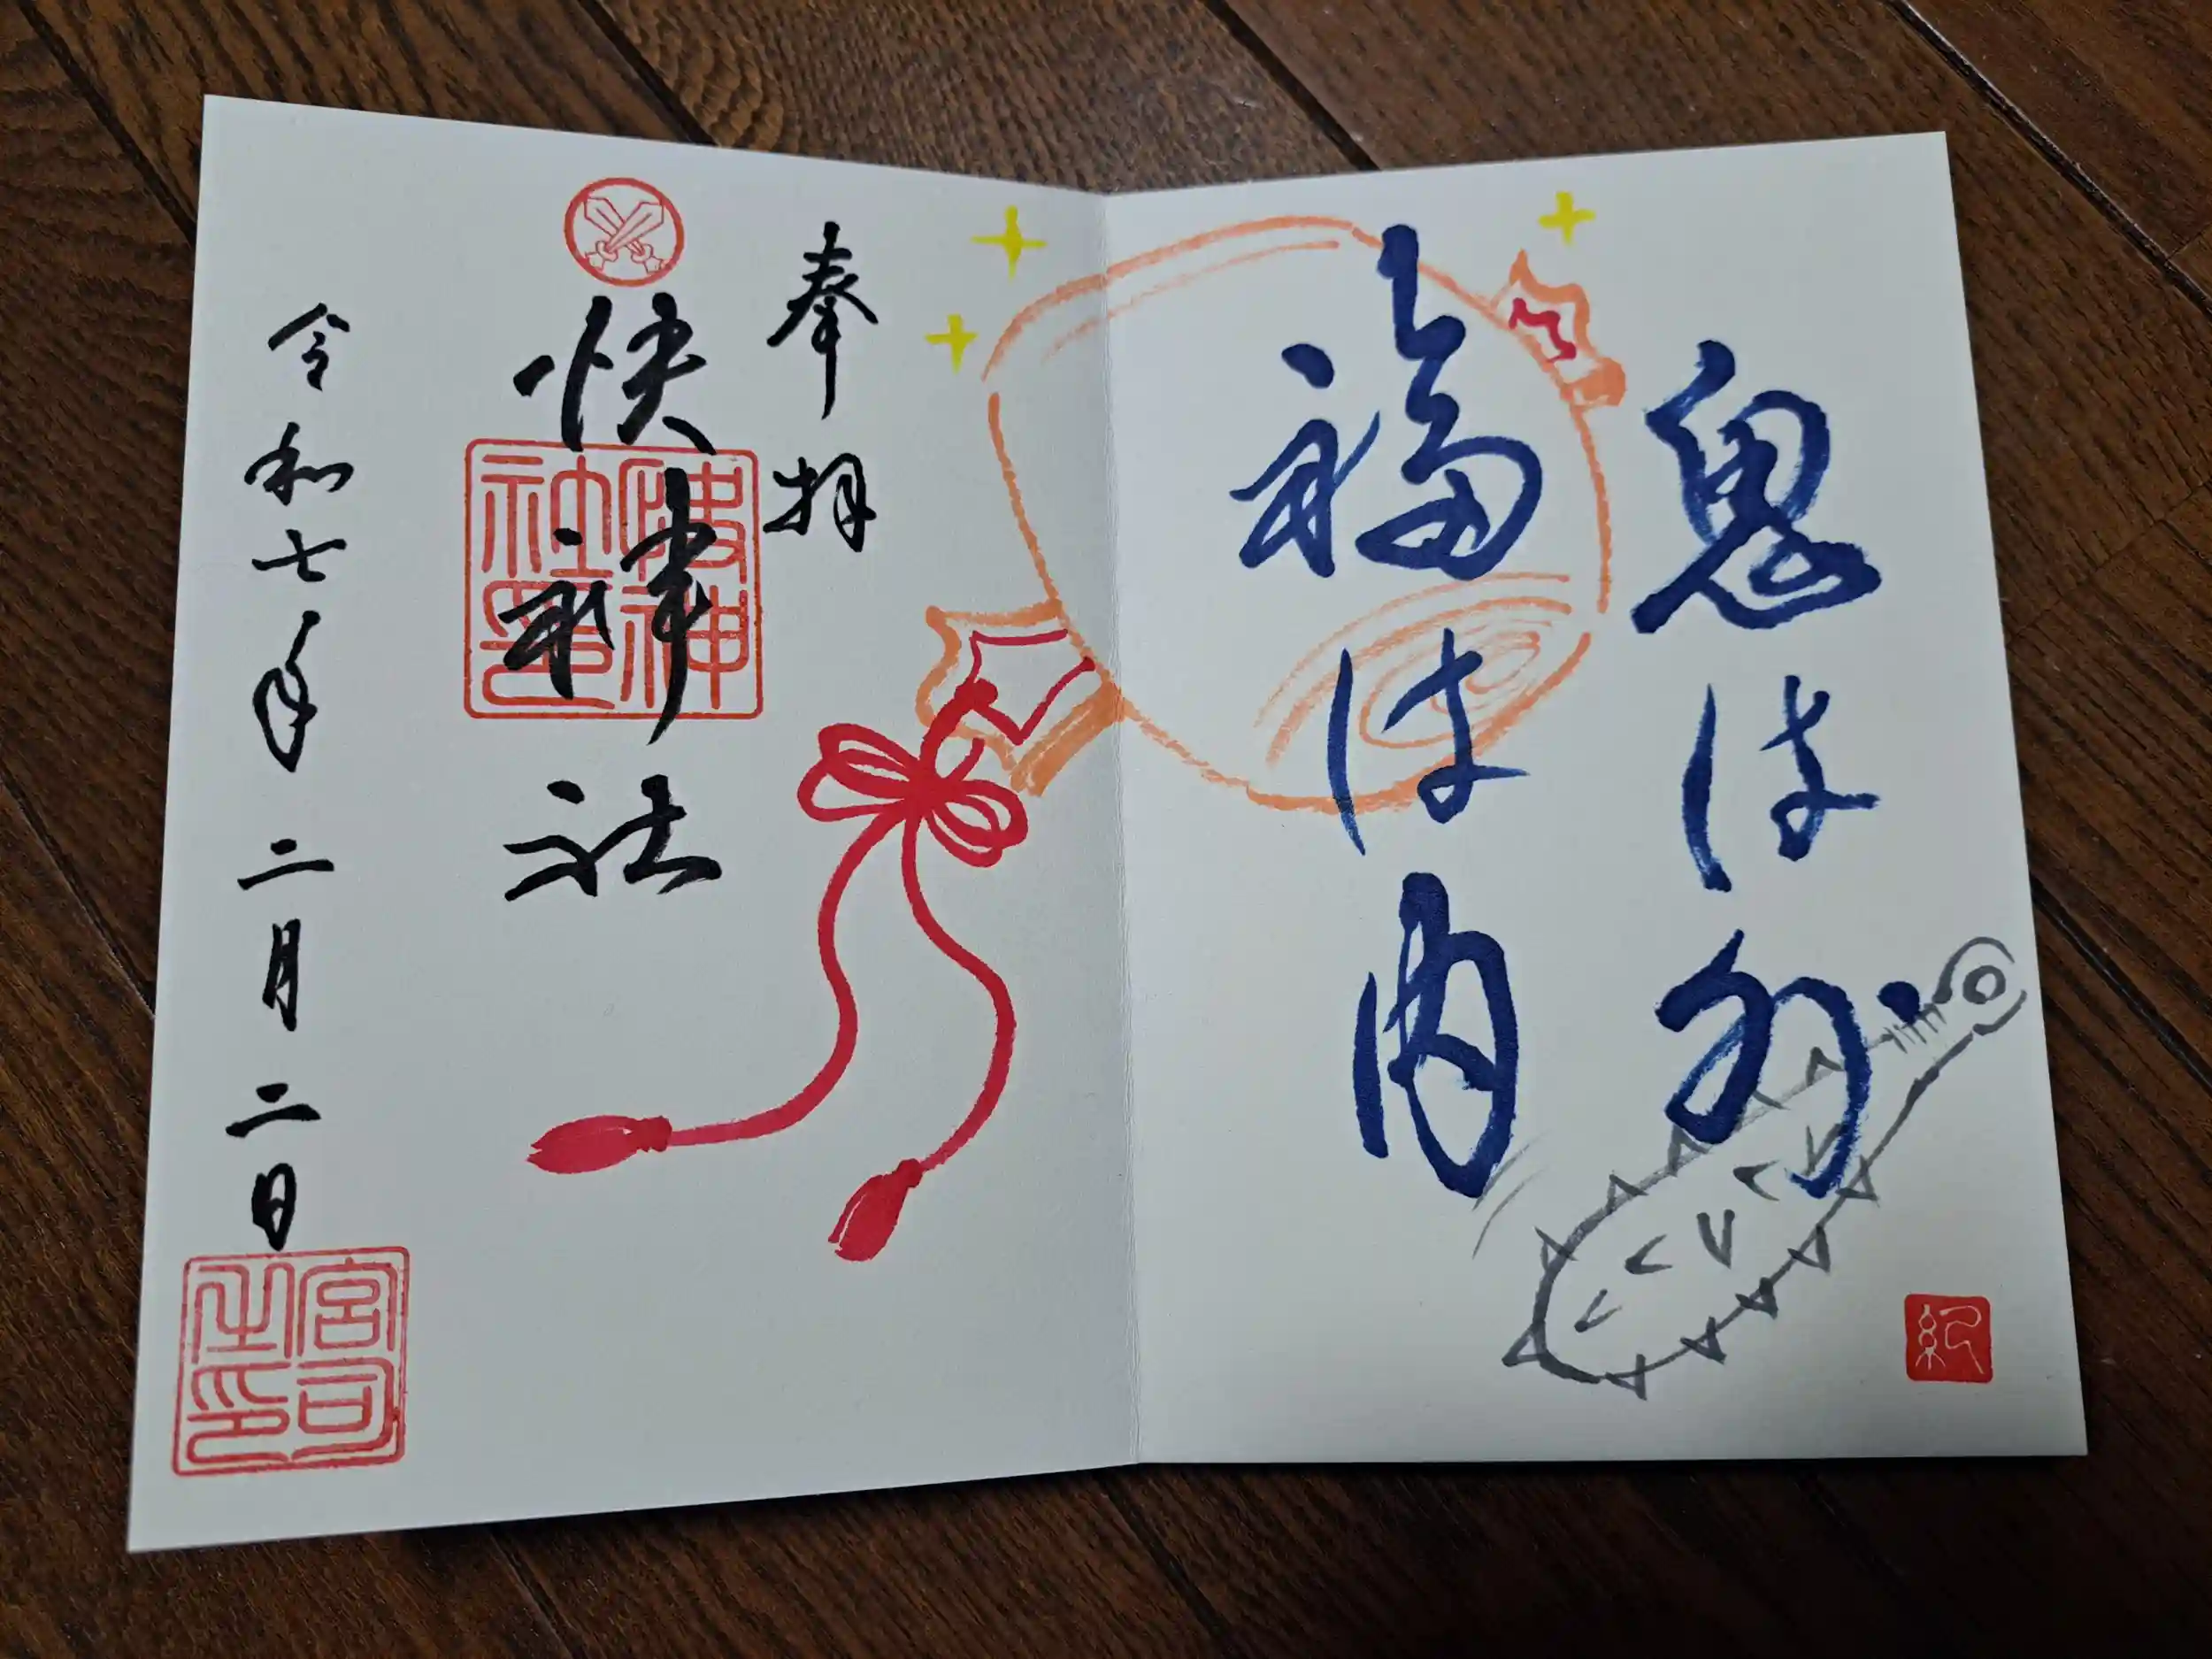 鬼は外
福は内
奉拝
快神社
快神社印
令和七年二月二日
宮司之印
紀